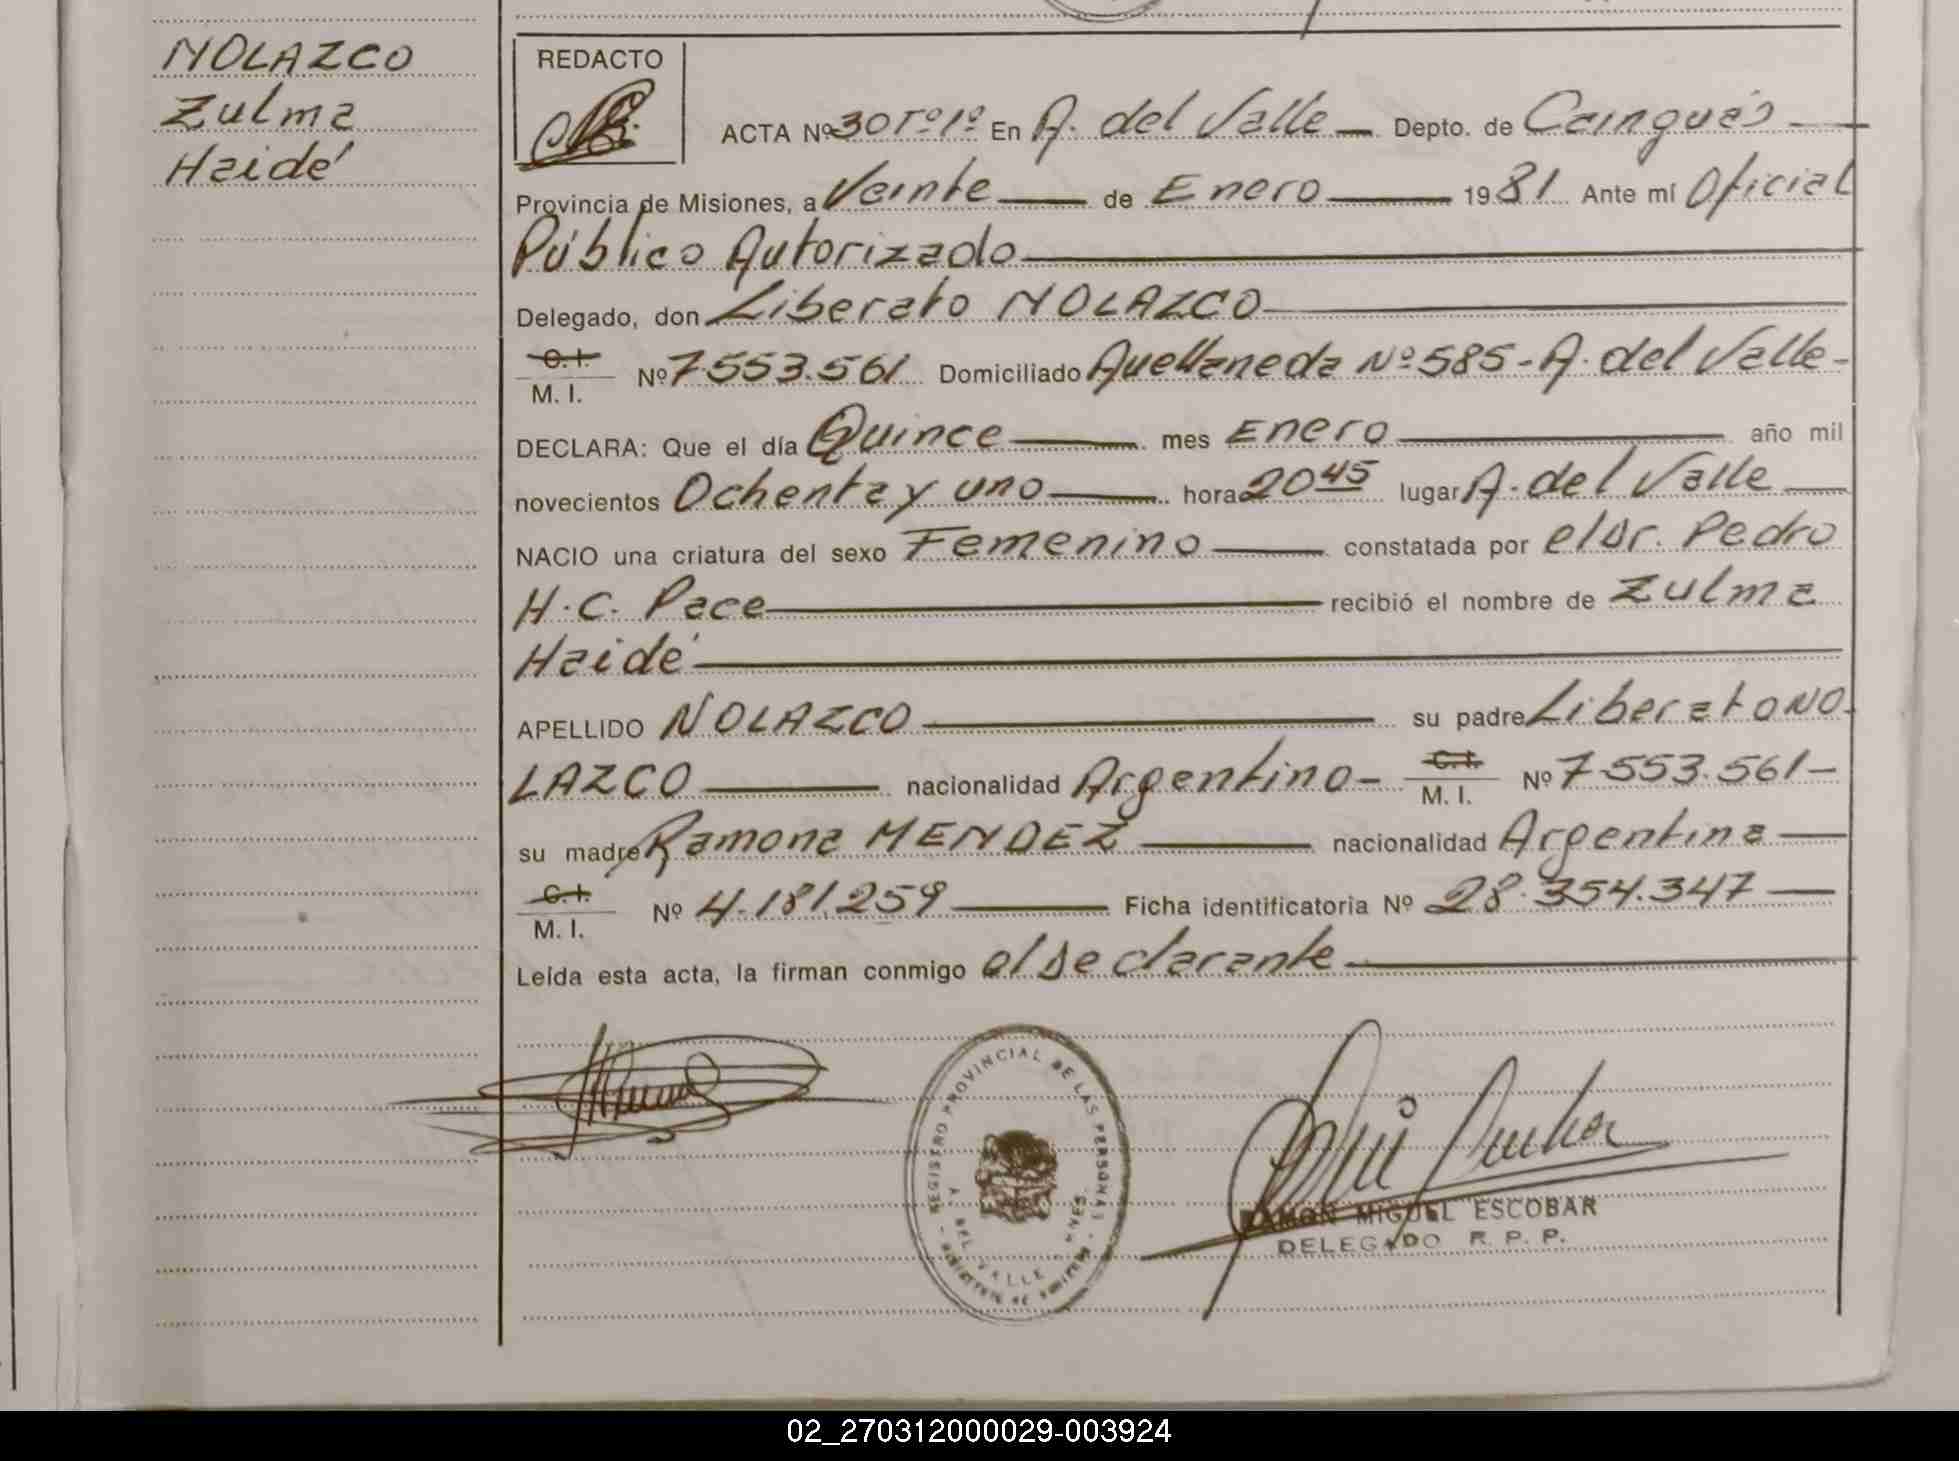 NOLAZCO
Zulma
Haidé
REDACTO
ACTA Nº 30 Tº 1º En A. del Valle Depto. de Cainguás
Provincia de Misiones, a Veinte de Enero 1981 Ante mí Oficial
Público Autorizado
Delegado, don Liberato NOLAZCO
C.I.
M. I. Nº 7.553.561 Domiciliado Avellaneda Nº 585 - A. del Valle -
DECLARA: Que el día Quince mes Enero año mil
novecientos Ochenta y uno hora 20 45 lugar A. del Valle
NACIO una criatura del sexo Femenino constatada por el Dr. Pedro
H. C. Pace recibió el nombre de Zulma
Haidé
APELLIDO NOLAZCO su padre Liberato NO
LAZCO nacionalidad Argentino - C.I. M. I. Nº 7.553.561 -
su madre Ramona MENDEZ nacionalidad Argentina
C.I.
M. I. Nº 4.181.259 Ficha identificatoria Nº 28.354.347
Leída esta acta, la firman conmigo el declarante
REGISTRO PROVINCIAL DE LAS PERSONAS
A. DEL VALLE
RAMON MIGUEL ESCOBAR
DELEGADO R. P. P.
02_270312000029-003924